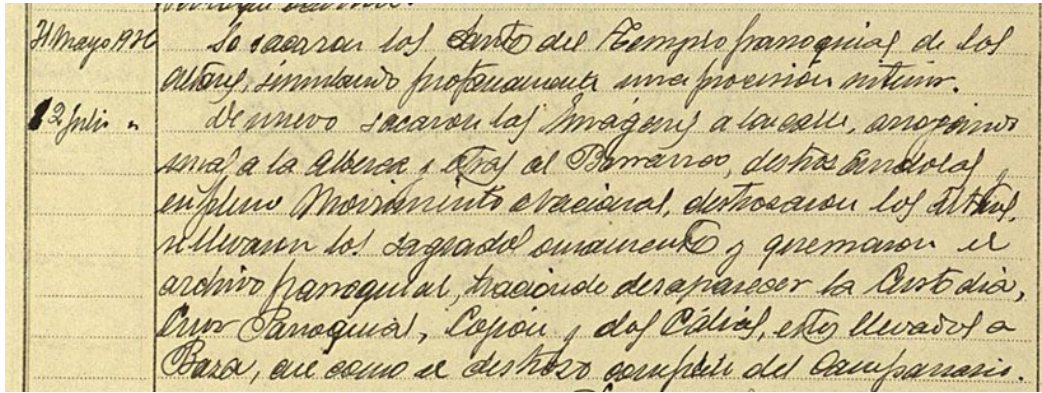 31 Mayo 1936 Se sacaron los Santos del Templo parroquial de los
altares, simulando profanamente una procesión
2 Julio " De nuevo sacaron las Imágenes a la calle, arrojando
unas a la Alberca y otras al Barranco, destrozándolas y
en pleno Movimiento Nacional, destrozaron los altares,
se llevaron los sagrados ornamentos y quemaron el
archivo parroquial, haciendo desaparecer la Custodia,
Cruz Parroquial, Copón y dos Cálices, estos llevados a
Baza, así como el destrozo completo del Campanario.